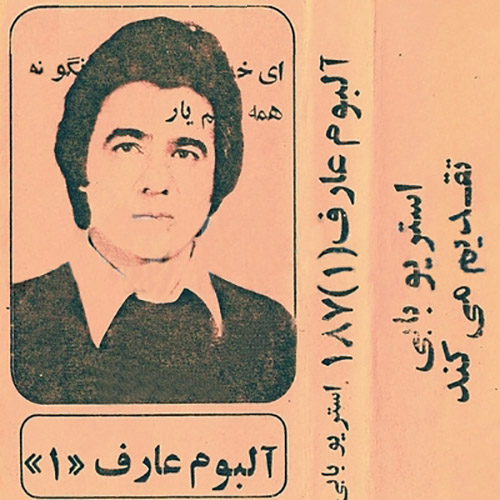 ای خ نگو نه
همه م یار
آلبوم عارف «۱»
آلبوم عارف (۱) ۱۸۷ استریو بابی
استریو بابی
تقدیم می کند